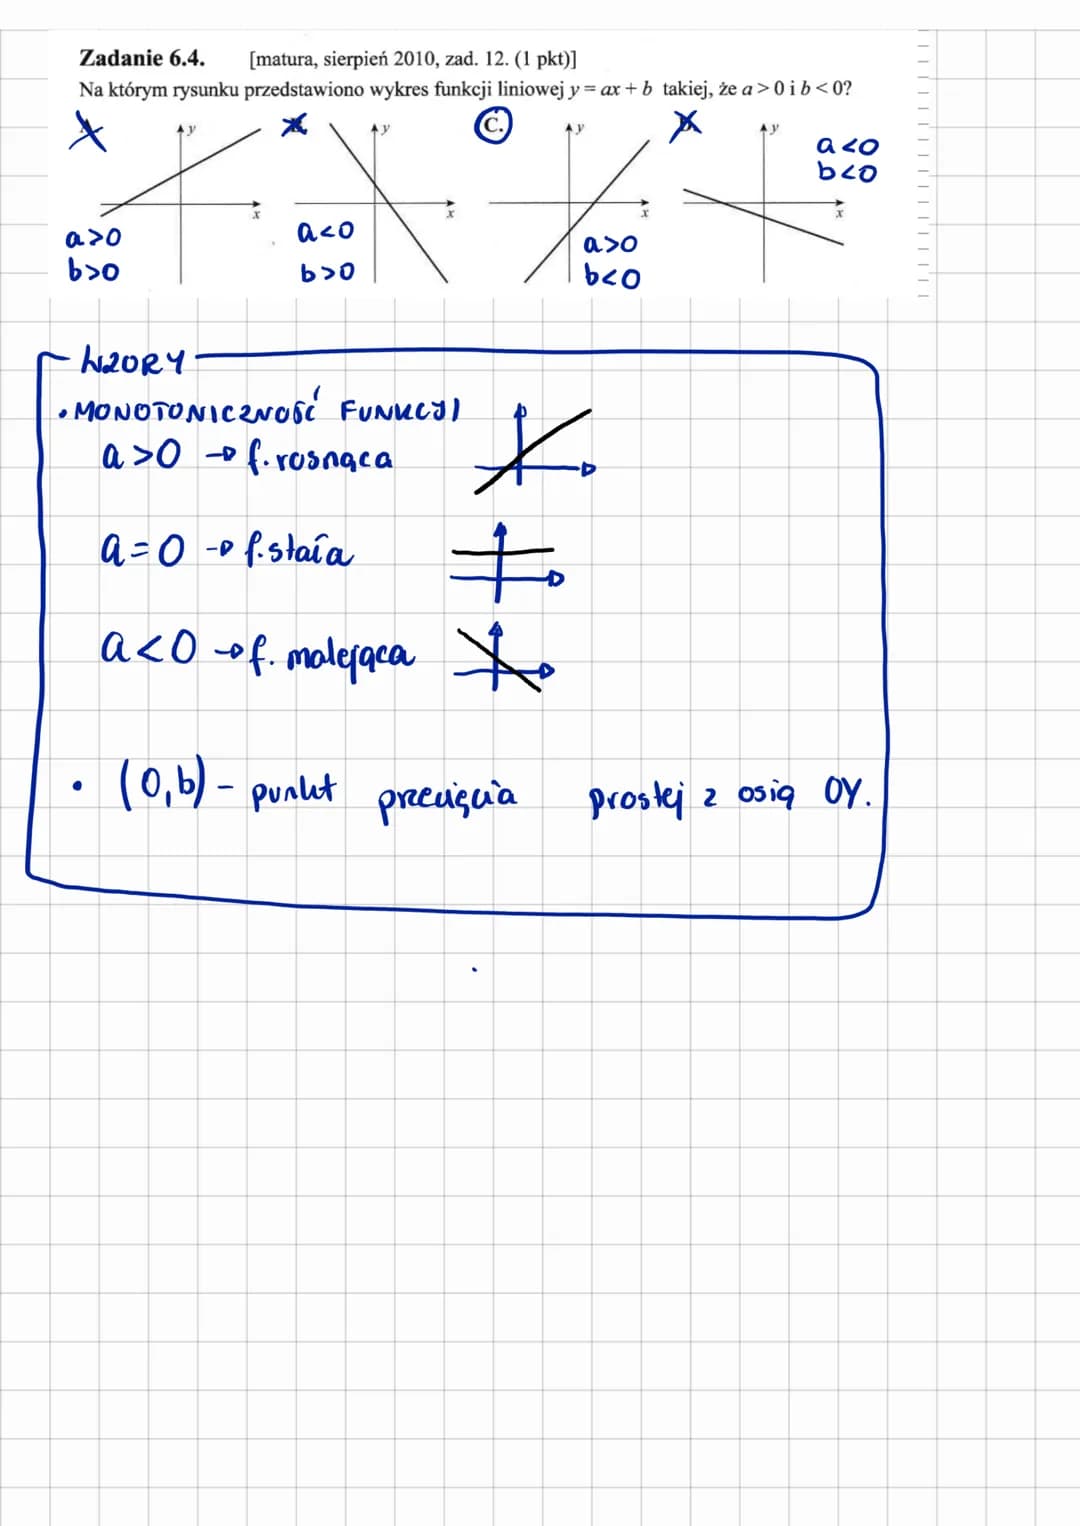 Zadanie 6.4. [matura, sierpień 2010, zad. 12. (1 pkt)]
Na którym rysunku przedstawiono wykres funkcji liniowej y = ax + b takiej, że a > 0 i b < 0?
C.
y y y y
x x x x
a>0
b>0
a<0
b>0
a>0
b<0
a<0
b<0
WZORY
• MONOTONICZNOŚĆ FUNKCJI
a>0 → f. rosnąca
a=0 → f. stała
a<0 → f. malejąca
• (0,b) - punkt przecięcia prostej z osią OY.